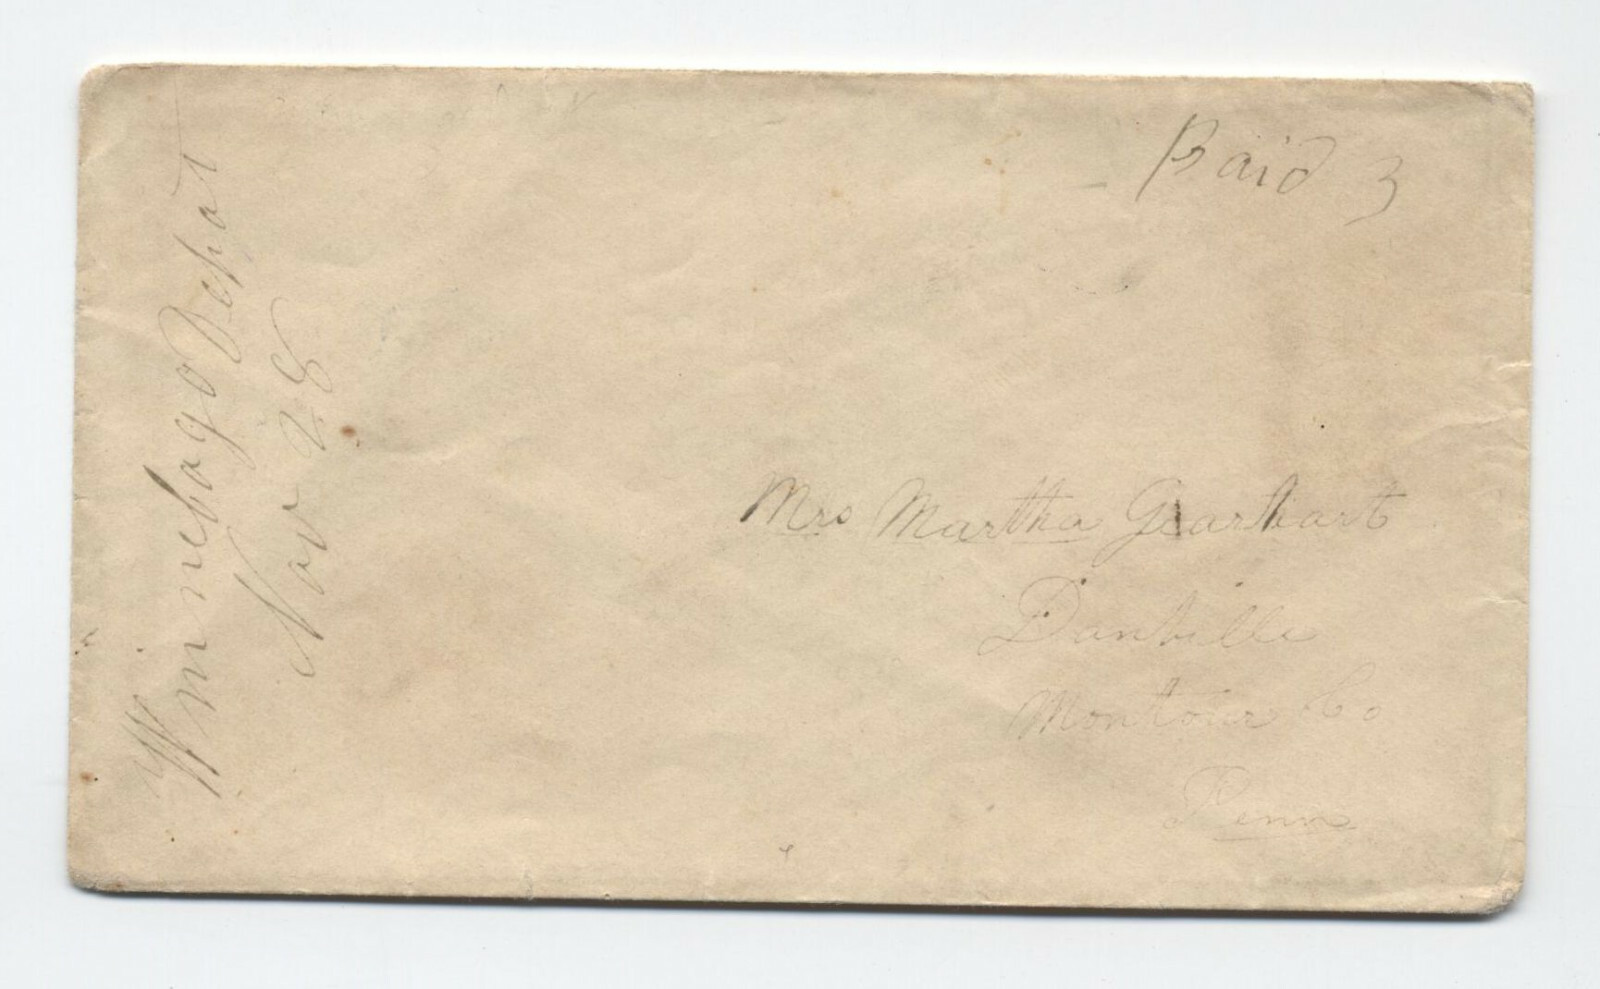 Paid 3
Winnebago Depot
Nov 28
Mrs Martha Gearhart
Danville
Montour Co
Penn